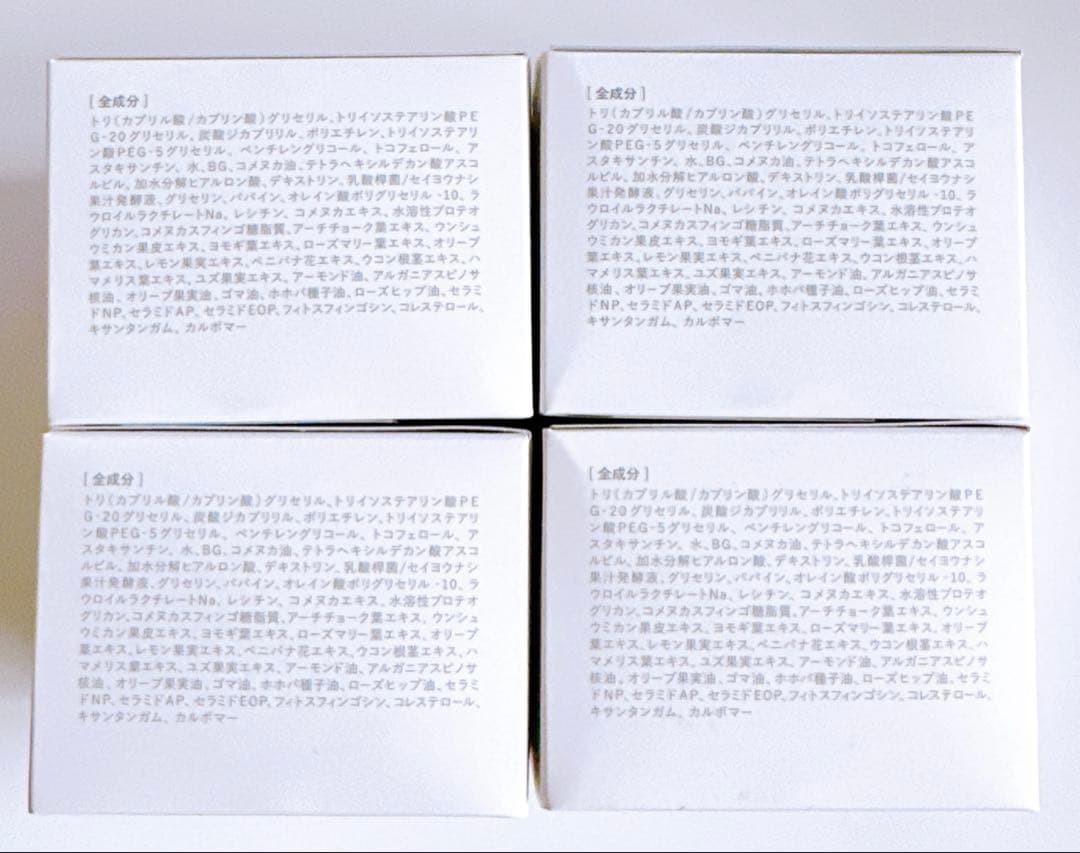 [全成分]
トリ(カプリル酸/カプリン酸)グリセリル、トリイソステアリン酸PE
G-20グリセリル、炭酸ジカプリリル、ポリエチレン、トリイソステアリ
ン酸PEG-5グリセリル、ペンチレングリコール、トコフェロール、ア
スタキサンチン、水、BG、コメヌカ油、テトラヘキシルデカン酸アスコ
ルビル、加水分解ヒアルロン酸、デキストリン、乳酸桿菌/セイヨウナシ
果汁発酵液、グリセリン、パパイン、オレイン酸ポリグリセリル-10、ラ
ウロイルラクチレートNa、レシチン、コメヌカエキス、水溶性プロテオ
グリカン、コメヌカスフィンゴ糖脂質、アーチチョーク葉エキス、ウンシュ
ウミカン果皮エキス、ヨモギ葉エキス、ローズマリー葉エキス、オリーブ
葉エキス、レモン果実エキス、ベニバナ花エキス、ウコン根茎エキス、ハ
マメリス葉エキス、ユズ果実エキス、アーモンド油、アルガニアスピノサ
核油、オリーブ果実油、ゴマ油、ホホバ種子油、ローズヒップ油、セラミ
ドNP、セラミドAP、セラミドEOP、フィトスフィンゴシン、コレステロール、
キサンタンガム、カルボマー
[全成分]
トリ(カプリル酸/カプリン酸)グリセリル、トリイソステアリン酸PE
G-20グリセリル、炭酸ジカプリリル、ポリエチレン、トリイソステアリ
ン酸PEG-5グリセリル、ペンチレングリコール、トコフェロール、ア
スタキサンチン、水、BG、コメヌカ油、テトラヘキシルデカン酸アスコ
ルビル、加水分解ヒアルロン酸、デキストリン、乳酸桿菌/セイヨウナシ
果汁発酵液、グリセリン、パパイン、オレイン酸ポリグリセリル-10、ラ
ウロイルラクチレートNa、レシチン、コメヌカエキス、水溶性プロテオ
グリカン、コメヌカスフィンゴ糖脂質、アーチチョーク葉エキス、ウンシュ
ウミカン果皮エキス、ヨモギ葉エキス、ローズマリー葉エキス、オリーブ
葉エキス、レモン果実エキス、ベニバナ花エキス、ウコン根茎エキス、ハ
マメリス葉エキス、ユズ果実エキス、アーモンド油、アルガニアスピノサ
核油、オリーブ果実油、ゴマ油、ホホバ種子油、ローズヒップ油、セラミ
ドNP、セラミドAP、セラミドEOP、フィトスフィンゴシン、コレステロール、
キサンタンガム、カルボマー
[全成分]
トリ(カプリル酸/カプリン酸)グリセリル、トリイソステアリン酸PE
G-20グリセリル、炭酸ジカプリリル、ポリエチレン、トリイソステアリ
ン酸PEG-5グリセリル、ペンチレングリコール、トコフェロール、ア
スタキサンチン、水、BG、コメヌカ油、テトラヘキシルデカン酸アスコ
ルビル、加水分解ヒアルロン酸、デキストリン、乳酸桿菌/セイヨウナシ
果汁発酵液、グリセリン、パパイン、オレイン酸ポリグリセリル-10、ラ
ウロイルラクチレートNa、レシチン、コメヌカエキス、水溶性プロテオ
グリカン、コメヌカスフィンゴ糖脂質、アーチチョーク葉エキス、ウンシュ
ウミカン果皮エキス、ヨモギ葉エキス、ローズマリー葉エキス、オリーブ
葉エキス、レモン果実エキス、ベニバナ花エキス、ウコン根茎エキス、ハ
マメリス葉エキス、ユズ果実エキス、アーモンド油、アルガニアスピノサ
核油、オリーブ果実油、ゴマ油、ホホバ種子油、ローズヒップ油、セラミ
ドNP、セラミドAP、セラミドEOP、フィトスフィンゴシン、コレステロール、
キサンタンガム、カルボマー
[全成分]
トリ(カプリル酸/カプリン酸)グリセリル、トリイソステアリン酸PE
G-20グリセリル、炭酸ジカプリリル、ポリエチレン、トリイソステアリ
ン酸PEG-5グリセリル、ペンチレングリコール、トコフェロール、ア
スタキサンチン、水、BG、コメヌカ油、テトラヘキシルデカン酸アスコ
ルビル、加水分解ヒアルロン酸、デキストリン、乳酸桿菌/セイヨウナシ
果汁発酵液、グリセリン、パパイン、オレイン酸ポリグリセリル-10、ラ
ウロイルラクチレートNa、レシチン、コメヌカエキス、水溶性プロテオ
グリカン、コメヌカスフィンゴ糖脂質、アーチチョーク葉エキス、ウンシュ
ウミカン果皮エキス、ヨモギ葉エキス、ローズマリー葉エキス、オリーブ
葉エキス、レモン果実エキス、ベニバナ花エキス、ウコン根茎エキス、ハ
マメリス葉エキス、ユズ果実エキス、アーモンド油、アルガニアスピノサ
核油、オリーブ果実油、ゴマ油、ホホバ種子油、ローズヒップ油、セラミ
ドNP、セラミドAP、セラミドEOP、フィトスフィンゴシン、コレステロール、
キサンタンガム、カルボマー